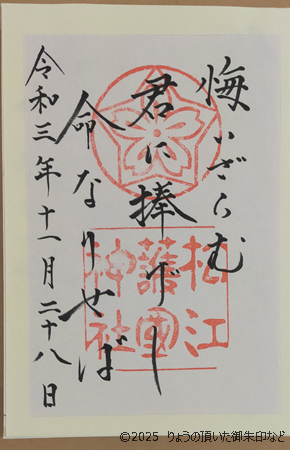 悔いざらむ
君に捧げし
命なりせば
令和三年十一月二十八日
松江
護國
神社
©2025 りょうの頂いた御朱印など